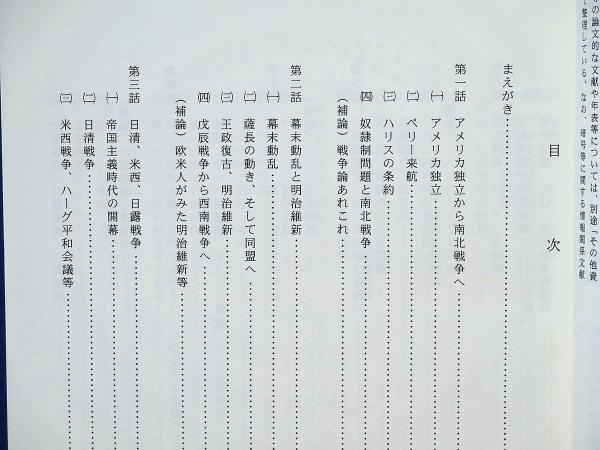 の論文的な文献や年表等については、別途「その他資
て整理している。なお、暗号等に関する情報関係文献
目次
まえがき
第一話 アメリカ独立から南北戦争へ
㈠ アメリカ独立
㈡ ペリー来航
㈢ ハリスの条約
㈣ 奴隷制問題と南北戦争
(補論)戦争論あれこれ
第二話 幕末動乱と明治維新
㈠ 幕末動乱
㈡ 薩長の動き、そして同盟へ
㈢ 王政復古、明治維新
㈣ 戊辰戦争から西南戦争へ
(補論)欧米人がみた明治維新等
第三話 日清、米西、日露戦争
㈠ 帝国主義時代の開幕
㈡ 日清戦争
㈢ 米西戦争、ハーグ平和会議等